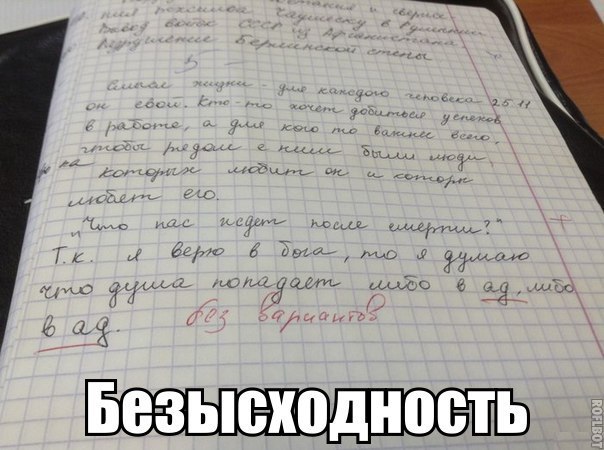 и сверже
ния Чаушеску в Румынии
Вывод войск СССР из Афганистана
Разрушение Берлинской стены
5
Смысл жизни - для каждого человека 25.11
он свой. Кто-то хочет добиться успехов
в работе, а для кого то важнее всего,
чтобы рядом с ним были люди,
на которых любит он и которы
любят его.
"Что нас ждет после смерти?"
Т.к. я верю в бога, то я думаю
что душа попадает либо в ад, либо
в ад. без вариантов
Безысходность
ROFLBOT